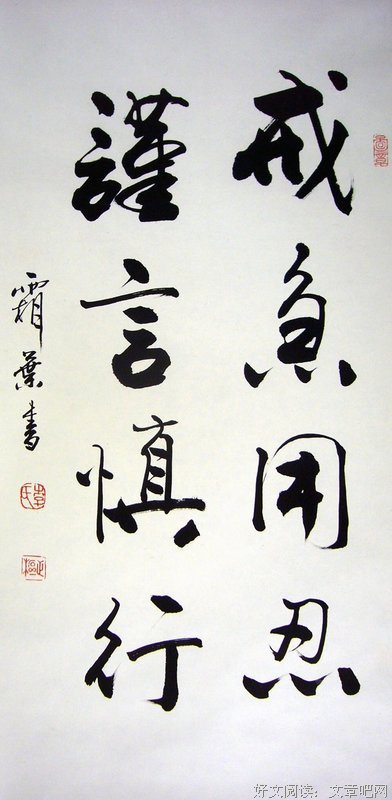 戒急用忍
謹言慎行
霜葉書
好文阅读：文章吧网